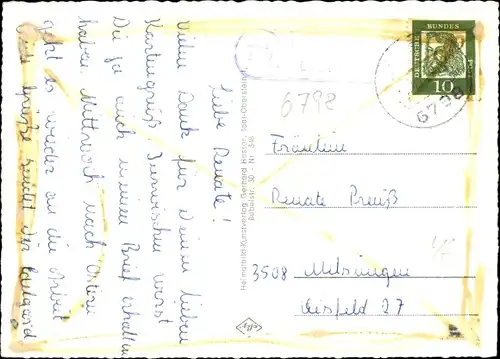 Liebe Renate!
Vielen Dank für Deinen lieben
Kartengruß. Inzwischen wirst
Du ja auch meinen Brief erhalten
haben. Mittwoch nach Ostern
geht es wieder an die Arbeit
Viele Grüße sendet Dir Edelgard
Heimatbild-Kunstverlag Gerhard Hosser, Idar-Oberstein
Agfa
DEUTSCHE BUNDESPOST
10
6798
6798
Fräulein
Renate Preuß
3508 Melsungen
Eisfeld 27